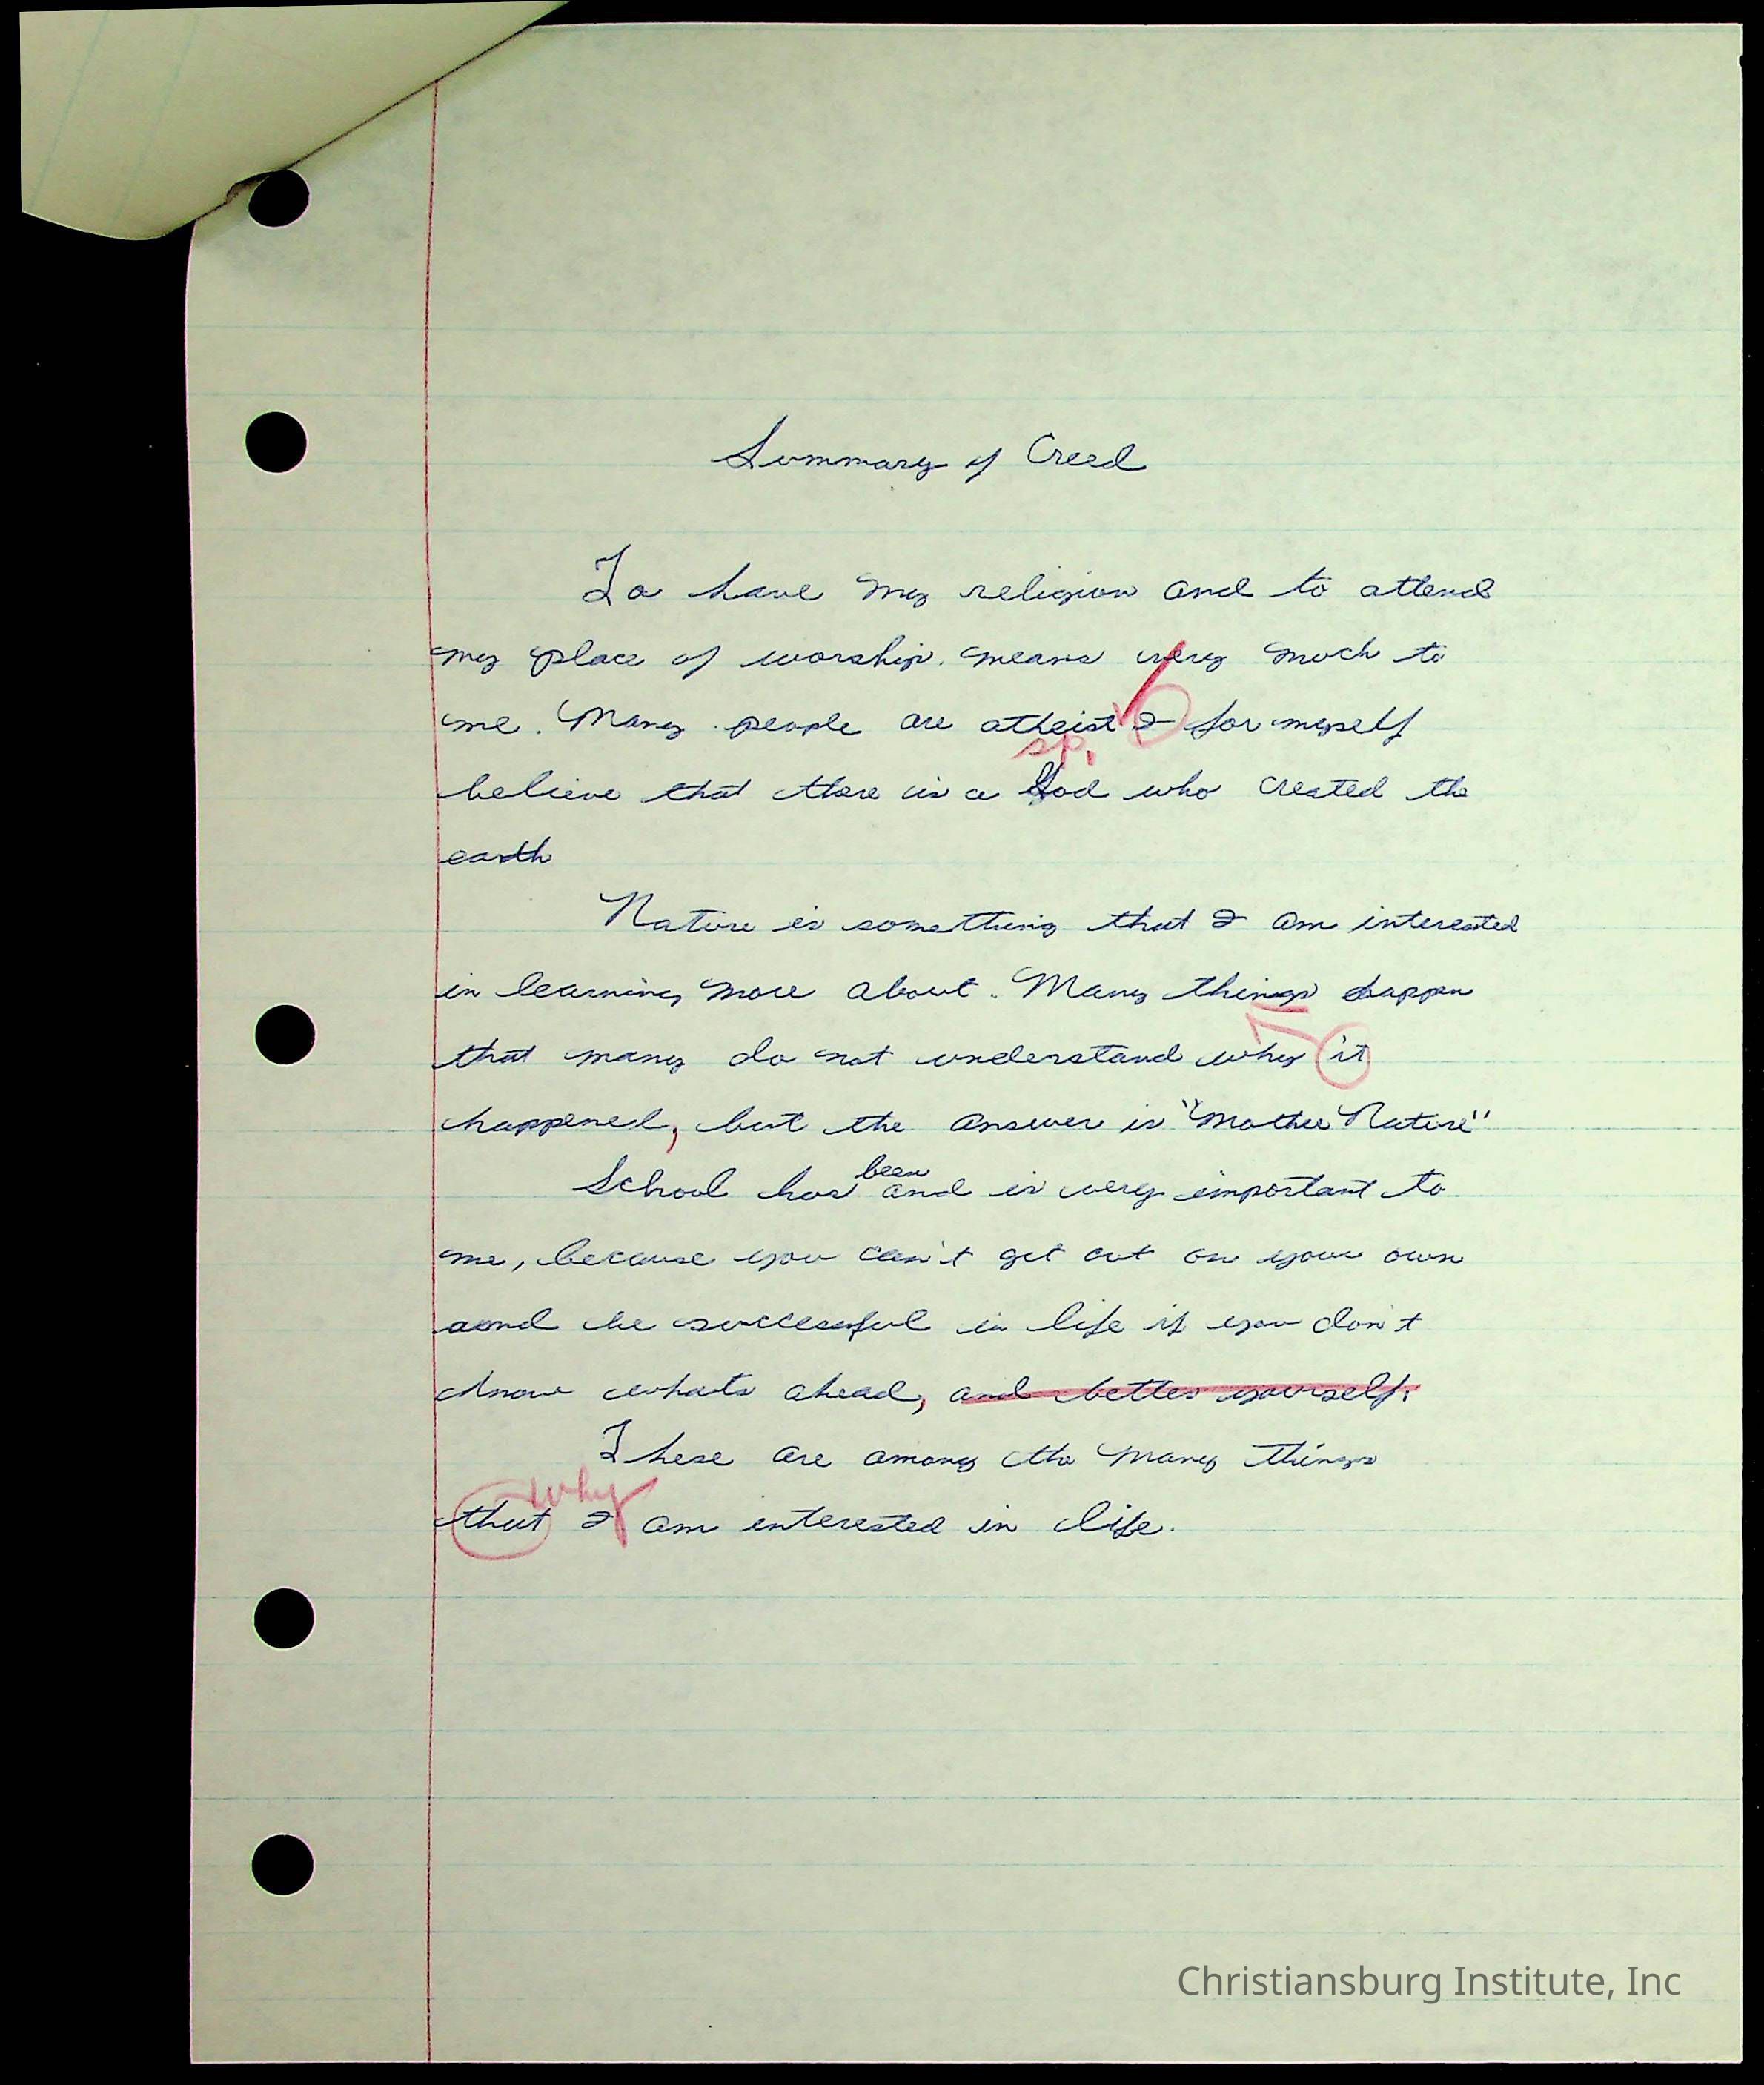 Summary of Creed
To have my religion and to attend
my place of worship. means very much to
me. Many people are atheist I for myself
sp.
believe that there is a God who created the
earth
Nature is something that I am interested
in learning more about. Many things happen
that many do not understand why it
happened, but the answer is "Mother Nature"
been
School has and is very important to
me, because you can't get out on your own
and be successful in life if you don't
know whats ahead, and better yourself.
These are among the many things
why
that I am interested in life.
Christiansburg Institute, Inc